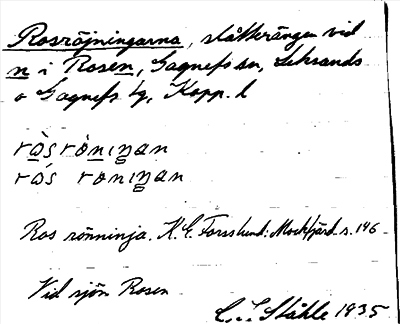 Rosröjningarna, slåtterängen vid
n i Rosen, Gagnefs sn, Leksands
o Gagnefs tg, Kopp. l
ròsròniŋan
rós roniŋan
Ros rönninja. K. E. Forsslund: Mockfjärd s. 146
Vid sjön Rosen
C. I. Ståhle 1935